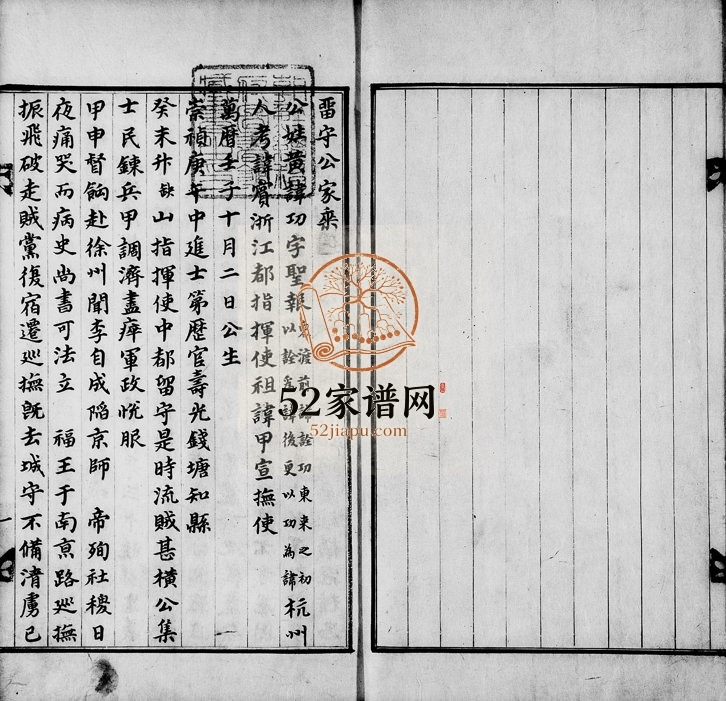 留守公家乘
公姓黃諱功字聖報 東渡前諱詮功東来之初以詮為諱後更以功為諱 杭州
人考諱賓浙江都指揮使祖諱甲宣撫使
萬曆壬子十月二日公生
崇禎庚午中進士第歷官壽光錢塘知縣
癸未 缺 山指揮使中都留守是時流賊甚橫公集
士民鍊兵甲調濟盡瘁軍政悅服
甲申督餉赴徐州聞李自成陷京師 帝殉社稷日
夜痛哭而病史尚書可法立 福王于南京路巡撫
振飛破走賊黨復宿遷巡撫既去城守不備清虜已
一
52家谱网
52jiapu.com